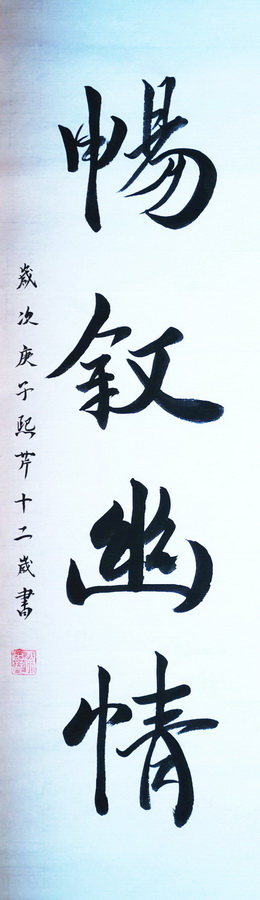 暢叙幽情
歲次庚子熙芹十二歲書